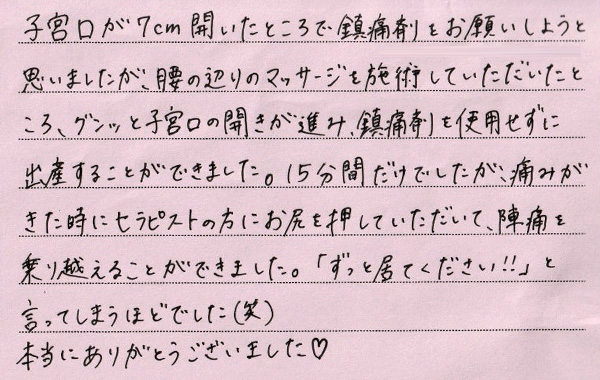 子宮口が7cm開いたところで鎮痛剤をお願いしようと
思いましたが、腰の辺りのマッサージを施術していただいたと
ころ、グンッと子宮口の開きが進み、鎮痛剤を使用せずに
出産することができました。15分間だけでしたが、痛みが
きた時にセラピストの方にお尻を押していただいて、陣痛を
乗り越えることができました。「ずっと居てください!!」と
言ってしまうほどでした(笑)
本当にありがとうございました♡